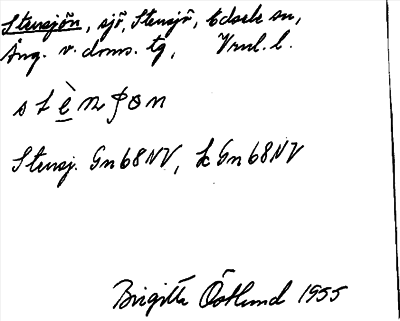 Stensjön, sjö, Stensjö, Edsele sn,
Ång. v. doms. tg, Vrnl. l.
stènʃon
Stensj. Gn 68 NV, k Gn 68 NV
Birgitta Östlund 1955